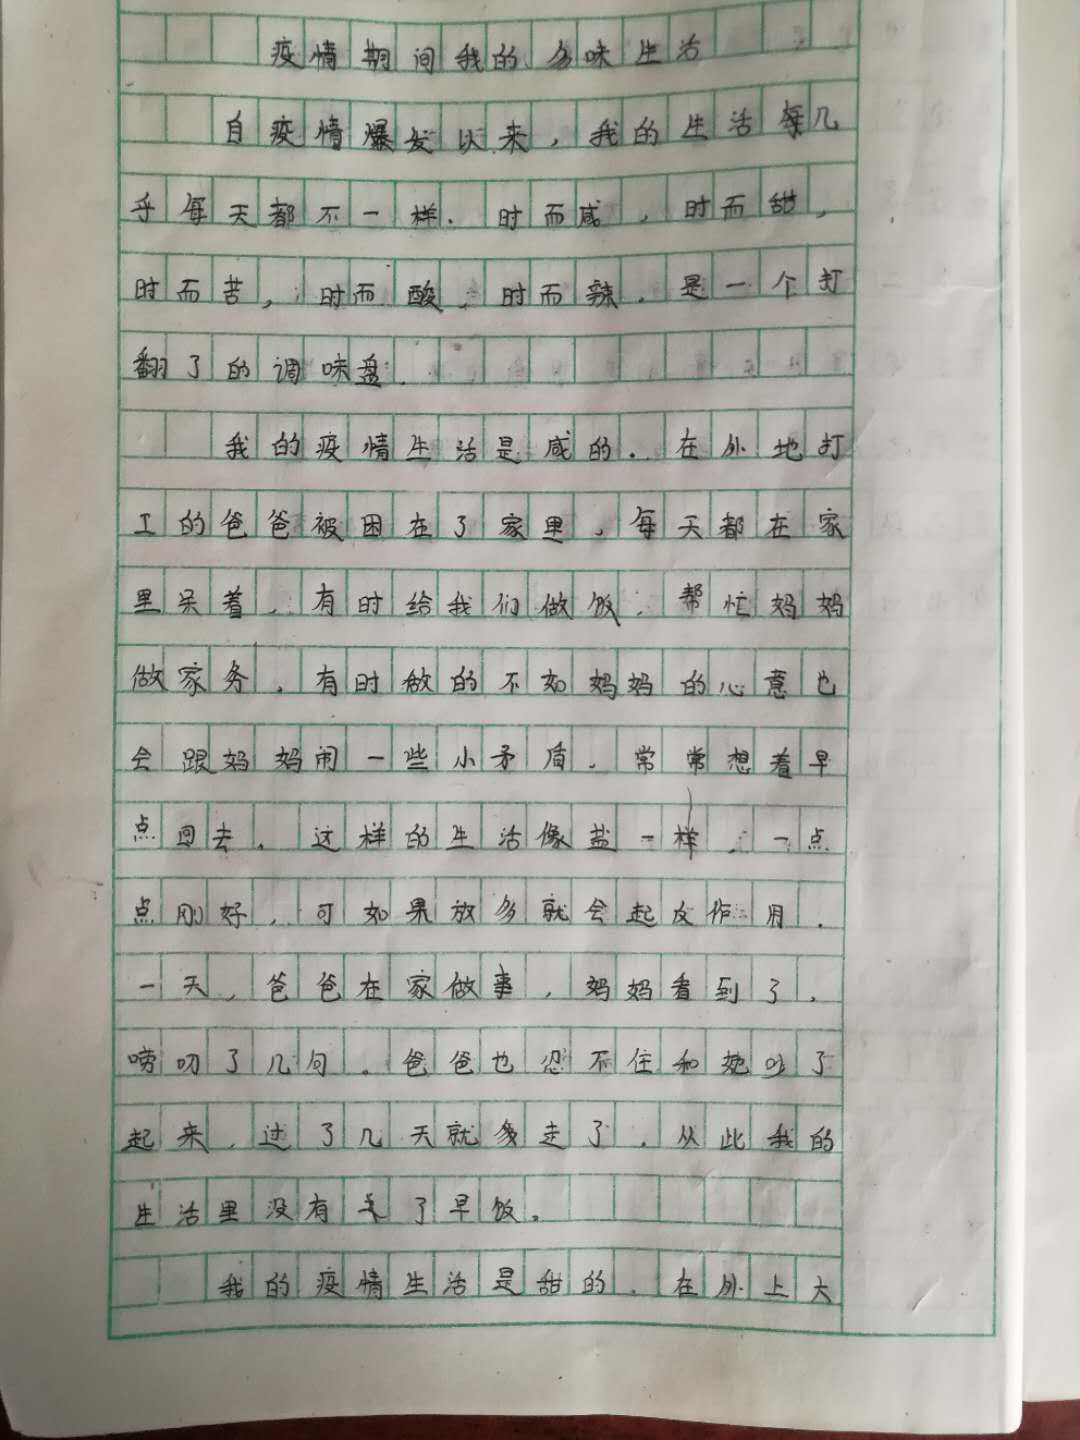 疫情期间我的多味生活
自疫情爆发以来,我的生活每几
乎每天都不一样.时而咸,时而甜,
时而苦,时而酸,时而辣.是一个打
翻了的调味盘.
我的疫情生活是咸的.在外地打
工的爸爸被困在了家里,每天都在家
里呆着,有时给我们做饭,帮忙妈妈
做家务.有时做的不如妈妈的心意也
会跟妈妈闹一些小矛盾.常常想着早
点回去.这样的生活像盐一样,一点
点刚好,可如果放多就会起反作用.
一天,爸爸在家做事,妈妈看到了,
唠叨了几句。爸爸也忍不住和她吵了
起来,过了几天就走了.从此我的
生活里没有了早饭。
我的疫情生活是甜的.在外上大